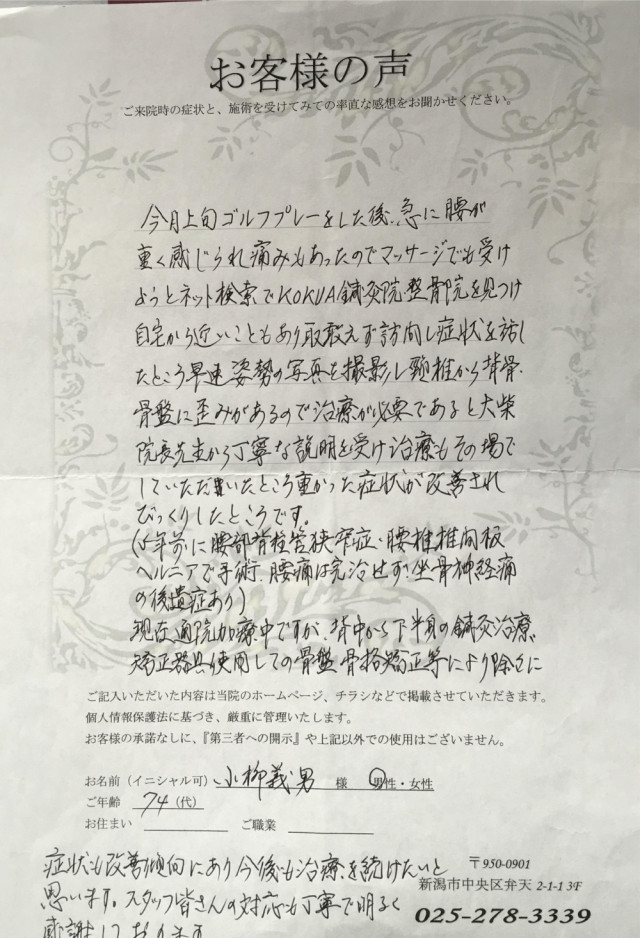 お客様の声
ご来院時の症状と、施術を受けてみての率直な感想をお聞かせください。
今月上旬ゴルフプレーをした後、急に腰が
重く感じられ痛みもあったのでマッサージでも受け
ようとネット検索でKOKUA鍼灸院・整骨院を見つけ
自宅から近いこともあり取敢えず訪問し症状を話し
たところ早速姿勢の写真を撮影し頸椎から背骨・
骨盤に歪みがあるので治療が必要であると大柴
院長先生から丁寧な説明を受け治療もその場で
していただいたところ重かった症状が改善され
びっくりしたところです。
(5年前に腰部脊柱管狭窄症・腰椎椎間板
ヘルニアで手術、腰痛は完治せず、坐骨神経痛
の後遺症あり)
現在通院加療中ですが、背中から下半身の鍼灸治療、
矯正器具使用しての骨盤・骨格矯正等により除々に
ご記入いただいた内容は当院のホームページ、チラシなどで掲載させていただきます。
個人情報保護法に基づき、厳重に管理いたします。
お客様の承諾なしに、『第三者への開示』や上記以外での使用はございません。
お名前(イニシャル可) 小柳義男 様 男性・女性
ご年齢 74(代)
お住まい ご職業
症状も改善傾向にあり今後も治療を続けたいと
思います。スタッフ皆さんの対応も丁寧で明るく
感謝しております
〒950-0901
新潟市中央区弁天 2-1-1 3F
025-278-3339